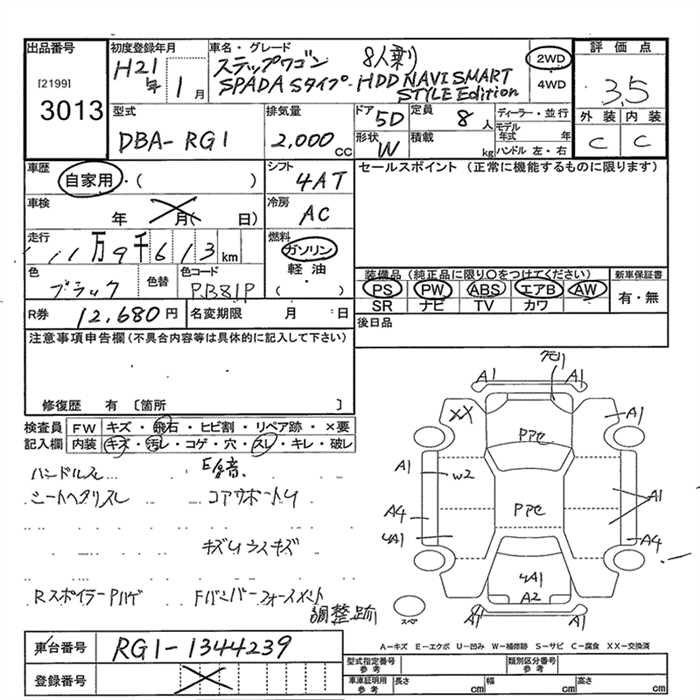 出品番号
[2199]
3013
初度登録年月
H21年 1月
車名・グレード
ステップワゴン 8人乗り
SPADA Sタイプ・HDD NAVI SMART
STYLE Edition
2WD
4WD
評価点
3.5
外装 内装
C C
型式
DBA-RG1
排気量
2,000 cc
ドア 5D
定員 8人
形状 W
積載 kg
ディーラー・並行
モデル年式 年
ハンドル 左・右
車歴
自家用・( )
シフト
4AT
セールスポイント (正常に機能するものに限ります)
車検
年 月( 日)
冷房
AC
走行
11万9千613km
燃料
ガソリン
軽油
( )
色
ブラック
色替
色コード
P.B81P
装備品 (純正品に限り○をつけてください)
PS PW ABS エアB AW
SR ナビ TV カワ
新車保証書
有・無
R券 12,680円
名変期限 月 日
後日品
注意事項申告欄(不具合内容等は具体的に記入して下さい)
修復歴 有 〔箇所 〕
検査員記入欄
FW キズ・飛石・ヒビ割・リペア跡・×要
内装 キズ・汚レ・コゲ・穴・スレ・キレ・破レ
ハンドルスレ
シートヘタリスレ
キズ
Rスポイラー
調整跡
A1 A1
XX
A1
A1
W2
A1
A4
4A1
A4
4A1
A2
A1 A1
スペア
A-キズ E-エクボ U-凹み W-補修跡 S-サビ C-腐食 XX-交換済
車台番号
RG1-1344239
登録番号
型式指定番号 参考
類別区分番号 参考
車庫証明用 参考
長さ cm
幅 cm
高さ cm